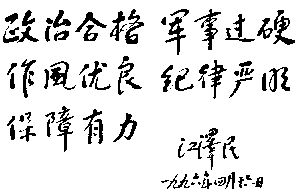 政治合格 军事过硬
作风优良 纪律严明
保障有力
江泽民
一九九六年四月六日